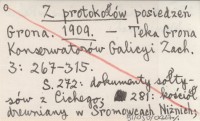 Z protokołów posiedzeń
Grona. 1909. — Teka Grona
Konserwatorów Galicyi Zach.
3: 267-315.
S. 272: dokumenty sołty-
sów z Cichego, 281: kościół
drewniany w Sromowcach Niżnich,